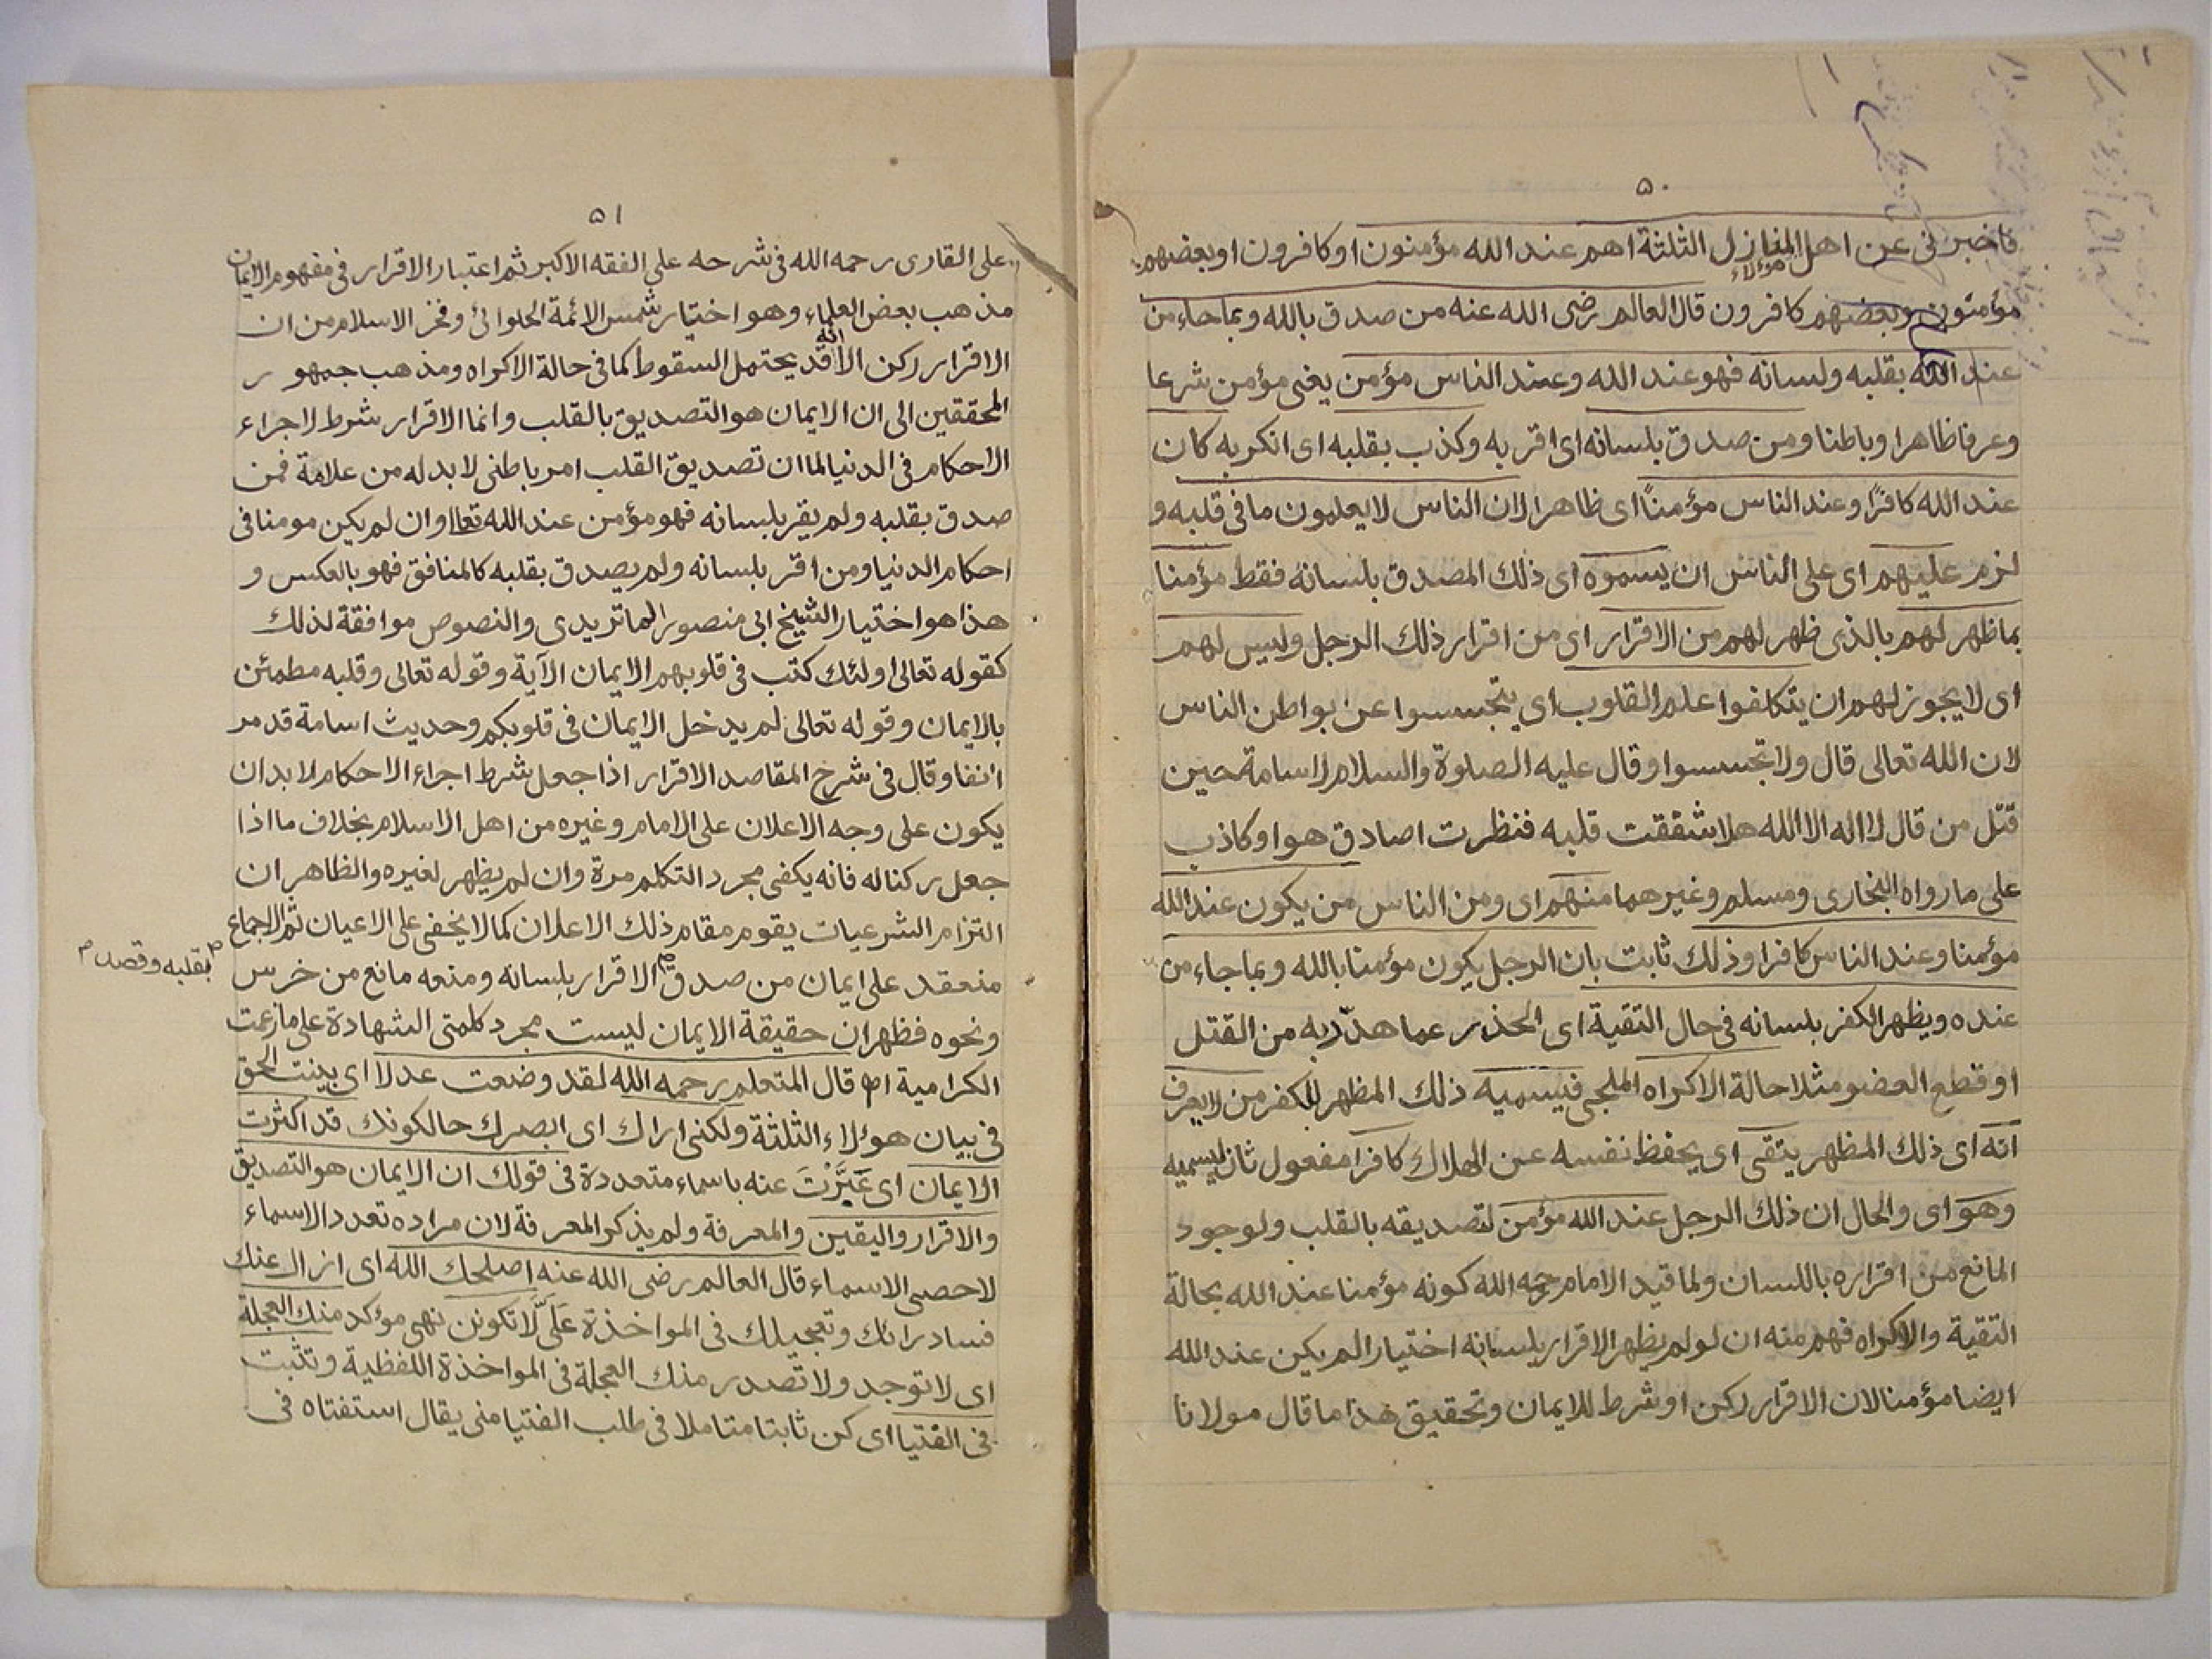 ٥٠
فاخبرنى عن اهل المنازل الثلثة اهم عند الله مؤمنون او كافرون او بعضهم
هؤلاء
مؤمنون وبعضهم كافرون قال العالم رضى الله عنه من صدق بالله وبما جاء من
عند الله بقلبه ولسانه فهو عند الله وعند الناس مؤمن يعنى مؤمن شرعا
وعرفا ظاهرا وباطنا ومن صدق بلسانه اى اقر به وكذب بقلبه اى انكر به كان
عند الله كافرًا وعند الناس مؤمنًا اى ظاهرا لان الناس لا يعلمون ما فى قلبه و
لزم عليهم اى على الناس ان يسموه اى ذلك المصدق بلسانه فقط مؤمنا
بما ظهر لهم بالذى ظهر لهم من الاقرار اى من اقرار ذلك الرجل وليس لهم
اى لا يجوز لهم ان يتكلفوا علم القلوب اى يتجسسوا عن بواطن الناس
لان الله تعالى قال ولا تجسسوا وقال عليه الصلوة والسلام لاسامة حين
قتل من قال لا اله الا الله هلا شققت قلبه فنظرت اصادق هو او كاذب
على ما رواه البخارى ومسلم وغيرهما منهم اى ومن الناس من يكون عند الله
مؤمنا وعند الناس كافرا وذلك ثابت بان الرجل يكون مؤمنا بالله وبما جاء من
عنده ويظهر الكفر بلسانه فى حال التقية اى الحذر عما هدّد به من القتل
او قطع العضو مثلا حالة الاكراه الملجى فيسميه ذلك المظهر للكفر من لا يعرف
انه اى ذلك المظهر يتقى اى يحفظ نفسه عن الهلاك كافرا مفعول ثان ليسميه
وهو اى والحال ان ذلك الرجل عند الله مؤمن لتصديقه بالقلب ولوجود
المانع من اقراره باللسان ولما قيد الامام رحمه الله كونه مؤمنا عند الله بحالة
التقية والاكراه فهم منه ان لو لم يظهر الاقرار بلسانه اختيارا لم يكن عند الله
ايضا مؤمنا لان الاقرار ركن او شرط للايمان وتحقيق هذا ما قال مولانا
٥١
على القارى رحمه الله فى شرحه على الفقه الاكبر ثم اعتبار الاقرار فى مفهوم الايمان
مذهب بعض العلماء وهو اختيار شمس الائمة الحلوائى وفخر الاسلام من ان
الاقرار ركن الا انه قد يحتمل السقوط كما فى حالة الاكراه ومذهب جمهور
المحققين الى ان الايمان هو التصديق بالقلب وانما الاقرار شرط لاجراء
الاحكام فى الدنيا لما ان تصديق القلب امر باطنى لا بد له من علامة فمن
صدق بقلبه ولم يقر بلسانه فهو مؤمن عند الله تعالى وان لم يكن مومنا فى
احكام الدنيا ومن اقر بلسانه ولم يصدق بقلبه كالمنافق فهو بالعكس و
هذا هو اختيار الشيخ ابى منصور الماتريدى والنصوص موافقة لذلك
كقوله تعالى اولئك كتب فى قلوبهم الايمان الآية وقوله تعالى وقلبه مطمئن
بالايمان وقوله تعالى لم يدخل الايمان فى قلوبكم وحديث اسامة قد مر
انفا وقال فى شرح المقاصد الاقرار اذا جعل شرط اجراء الاحكام لا بد ان
يكون على وجه الاعلان على الامام وغيره من اهل الاسلام بخلاف ما اذا
جعل ركنا له فانه يكفى مجرد التكلم مرة وان لم يظهر لغيره والظاهر ان
التزام الشرعيات يقوم مقام ذلك الاعلان كما لا يخفى على الاعيان ثم الاجماع
منعقد على ايمان من صدق الاقرار بلسانه ومنعه مانع من خرس
بقلبه وقصد
ونحوه فظهر ان حقيقة الايمان ليست مجرد كلمتى الشهادة على ما زعمت
الكرامية اه قال المتعلم رحمه الله لقد وضعت عدلا اى بينت الحق
فى بيان هؤلاء الثلثة ولكنى اراك اى ابصرك حالكونك قد اكثرت
الايمان اى عَبَّرْتَ عنه باسماء متعددة فى قولك ان الايمان هو التصديق
والاقرار واليقين والمعرفة ولم يذكر المعرفة لان مراده تعدد الاسماء
لا حصر الاسماء قال العالم رضى الله عنه اصلحك الله اى ازال عنك
فساد رائك وتعجيلك فى المواخذة عَلَىَّ لا تكونن نهى مؤكد منك العجلة
اى لا توجد ولا تصدر منك العجلة فى المواخذة اللفظية وتثبت
فى الفتيا اى كن ثابتا متاملا فى طلب الفتيا منى يقال استفتاه فى